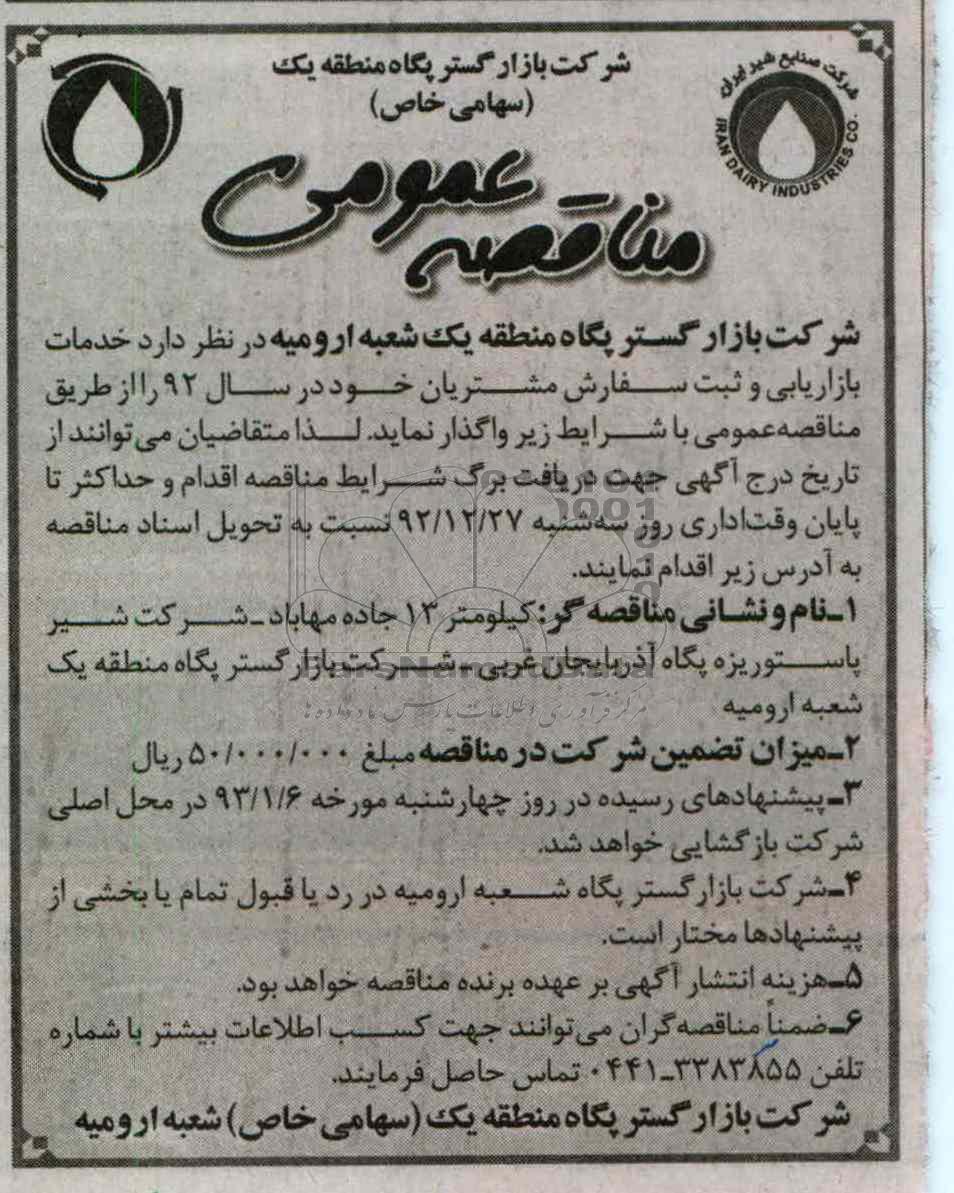 شرکت بازار گستر پگاه منطقه یک
(سهامی خاص)
شرکت صنایع شیر ایران
IRAN DAIRY INDUSTRIES CO.
مناقصه عمومی
شرکت بازار گستر پگاه منطقه یک شعبه ارومیه در نظر دارد خدمات
بازاریابی و ثبت سفارش مشتریان خود در سال ۹۲ را از طریق
مناقصه عمومی با شرایط زیر واگذار نماید. لذا متقاضیان می توانند از
تاریخ درج آگهی جهت دریافت برگ شرایط مناقصه اقدام و حداکثر تا
پایان وقت اداری روز سه شنبه ۹۲/۱۲/۲۷ نسبت به تحویل اسناد مناقصه
به آدرس زیر اقدام نمایند.
۱ـ نام و نشانی مناقصه گر: کیلومتر ۱۳ جاده مهاباد ـ شرکت شیر
پاستوریزه پگاه آذربایجان غربی ـ شرکت بازار گستر پگاه منطقه یک
شعبه ارومیه
۲ـ میزان تضمین شرکت در مناقصه مبلغ ۵۰/۰۰۰/۰۰۰ ریال
۳ـ پیشنهادهای رسیده در روز چهارشنبه مورخه ۹۳/۱/۶ در محل اصلی
شرکت بازگشایی خواهد شد.
۴ـ شرکت بازار گستر پگاه شعبه ارومیه در رد یا قبول تمام یا بخشی از
پیشنهادها مختار است.
۵ـ هزینه انتشار آگهی بر عهده برنده مناقصه خواهد بود.
۶ـ ضمناً مناقصه گران می توانند جهت کسب اطلاعات بیشتر با شماره
تلفن ۳۳۸۳۸۵۵ـ۰۴۴۱ تماس حاصل فرمایند.
شرکت بازار گستر پگاه منطقه یک (سهامی خاص) شعبه ارومیه